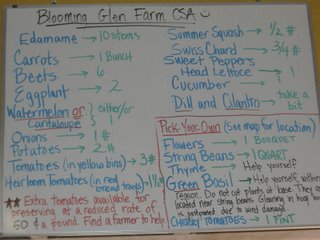 Blooming Glen Farm CSA
Edamame → 10 stems
Carrots → 1 Bunch
Beets → 6
Eggplant → 2
Watermelon or
Cantaloupe } either/or 1
Onions → 1#
Potatoes → 2#
Tomatoes (in yellow bins) → 3#
Heirloom Tomatoes (in red bread trays) → 1½#
★★ Extra tomatoes available for
preserving at a reduced rate of
50¢ a pound. Find a farmer to help
Summer Squash → ½#
Swiss Chord → ¾#
Sweet Peppers
Head Lettuce → 1
Cucumber
Dill and Cilantro → take a bit
Pick-Your-Own (See map for location)
Flowers → 1 BOUQUET
String Beans → 1 QUART
Thyme Help yourself
Green Basil → Help yourself, within
reason. Do not cut plants at base. They are
located near String beans. Gleaning is
postponed due to wind damage
Cherry Tomatoes → 1 PINT